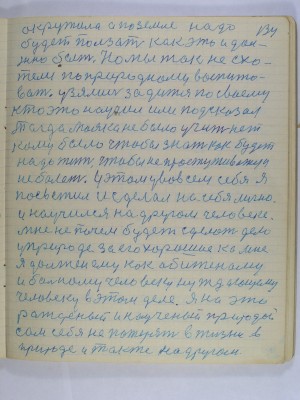 окружила а по земле надо 134
будет ползат как это и дол-
жно быт. Но мы так не схо-
тели по природному воспито-
ват. узялись за дитя по своему
кто это научил или подсказал
тогда молка не было учит нет
кому было чтобы знат как будет
надо жит чтобы не простуживатся
не болет. Я этому во всем себя я
посвятил и сделал на себя лично
и научился на другом человеке.
мне не почем будет сделат дело
у природе за его хорошие ка мне
я должен ему как обиженому
и больному человеку нуждающему
человеку в этом деле. Я на это
рожденый и наученый природой
сам себя не потерят в жизни в
природе и также на другом.